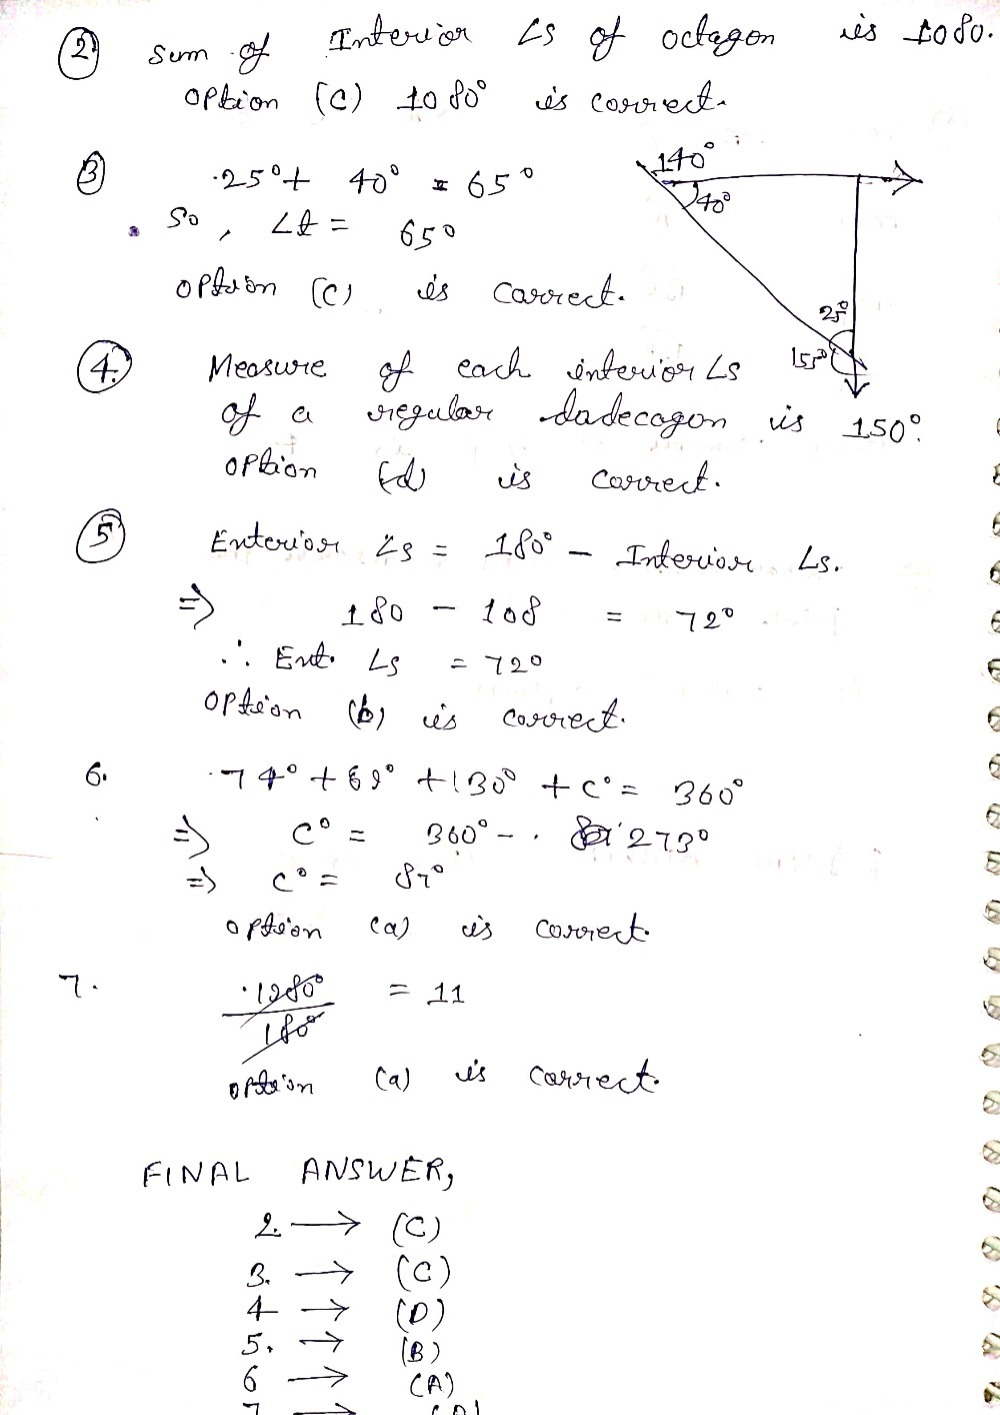 2 Sum of Interior ∠s of octagon is 1080.
option (C) 1080° is correct.
3 25°+ 40° = 65°
So, ∠t = 65°
option (C) is correct.
140°
40°
25°
155°
4. Measure of each interior ∠s
of a regular dadecagon is 150°.
option (d) is correct.
5 Exterior ∠s = 180° - Interior ∠s.
=> 180 - 108 = 72°
∴ Ext. ∠s = 72°
option (b) is correct.
6. 74° + 69° + 130° + C° = 360°
=> C° = 360° - 273°
=> C° = 87°
option (a) is correct
7. 1980°
180° = 11
option (a) is correct.
FINAL ANSWER,
2. → (C)
3. → (C)
4 → (D)
5. → (B)
6 → (A)
7 →